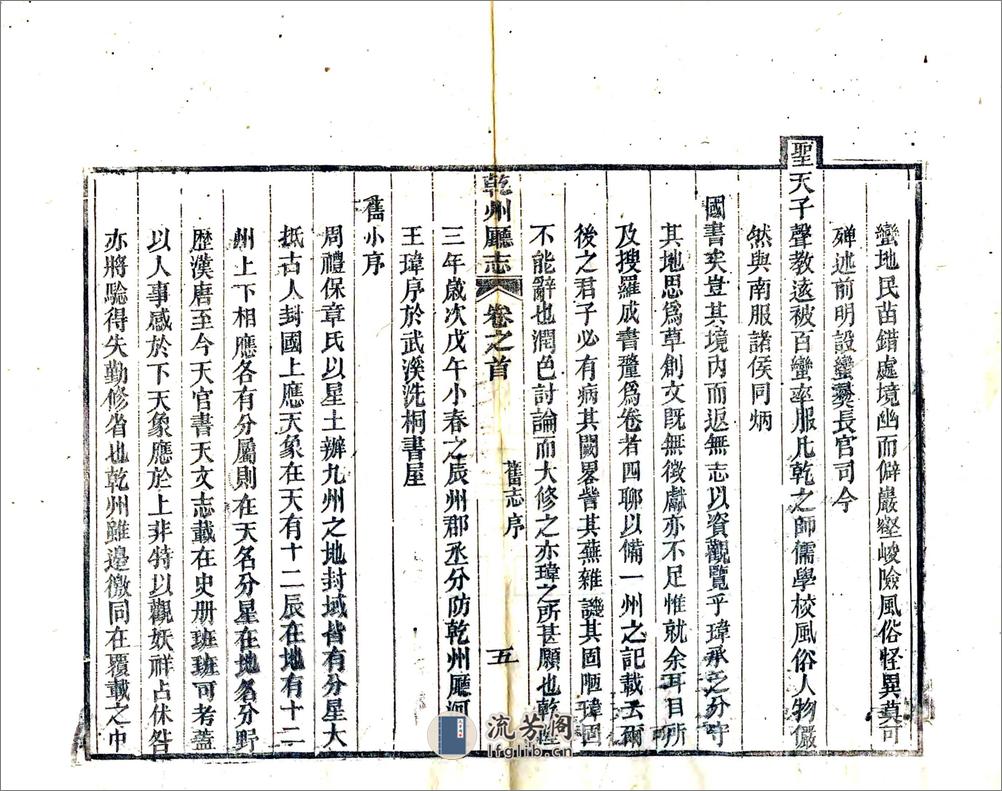 蠻地民苗錯處境幽而僻巖壑峻險風俗怪異莫可
殫述前明設蠻彝長官司今
聖天子聲教遠被百蠻率服凡乾之師儒學校風俗人物儼
然與南服諸侯同炳
國書矣豈其境內而返無志以資觀覽乎瑋承乏分守
其地思爲草創文既無徵獻亦不足惟就余耳目所
及搜羅成書釐爲卷者四聊以備一州之記載云爾
後之君子必有病其闕畧訾其蕪雜譏其固陋瑋固
不能辭也潤色討論而大修之亦瑋之所甚願也乾隆
乾州廳志 卷之首 舊志序 五
三年歲次戊午小春之辰州郡丞分防乾州廳河
王瑋序於武溪洗桐書屋
舊小序
周禮保章氏以星土辨九州之地封域皆有分星大
抵古人封國上應天象在天有十二辰在地有十二
州上下相應各有分屬則在天名分星在地名分野
歷漢唐至今天官書天文志載在史册班班可考蓋
以人事感於下天象應於上非特以觀妖祥占休咎
亦將驗得失勤修省也乾州雖邊徼同在覆載之中
流芳阁
lfglib.com.cn